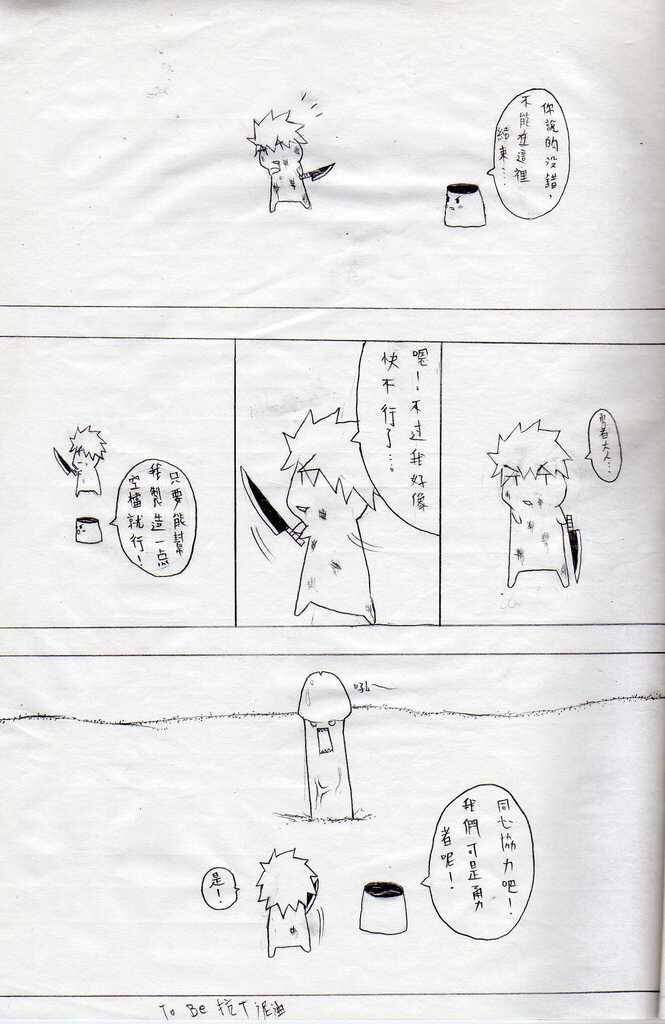 你說的没錯，
不能在這裡
結束…
勇者大人…
嗯！不过我好像
快不行了…
只要能幫
我製造一点
空檔就行！
吼～
同心協力吧！
我們可是勇
者呢！
是！
To Be 抗下泥油